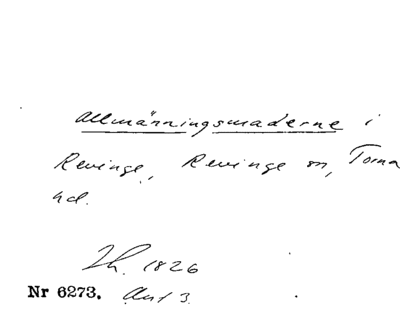 allmänningsmaderne i
Revinge, Revinge sn, Torna
hd.
Lh. 1826
Nr 6273. Akt 3.